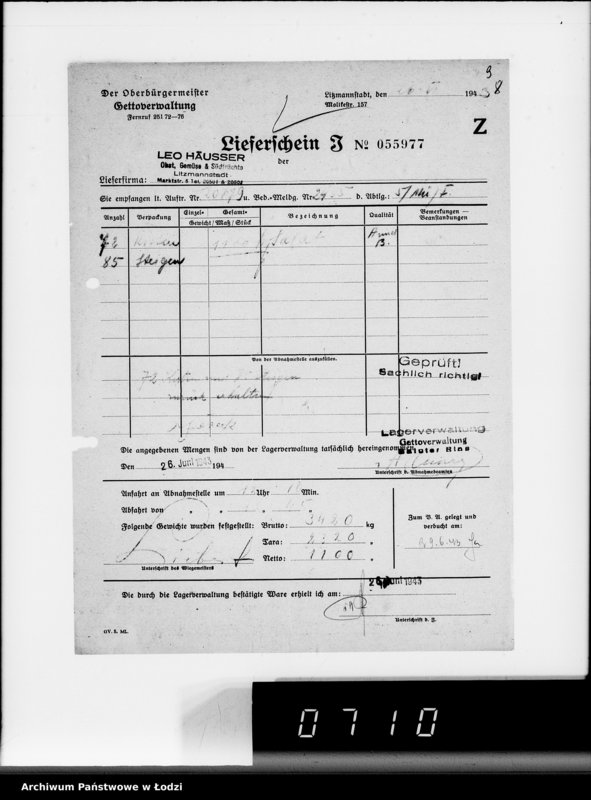 9
8
Der Oberbürgermeister
Gettoverwaltung
Fernruf 251 72—76
Litzmannstadt, den 194 3
Moltkestr. 157
Z
Lieferschein J № 055977
der
LEO HÄUSSER
Obst, Gemüse & Südfrüchte
Litzmannstadt
Lieferfirma:
Sie empfangen lt. Auftr. Nr. u. Bed.-Meldg. Nr. d. Abtlg.:
Anzahl Verpackung Einzel- Gesamt- Bezeichnung Qualität Bemerkungen —
Gewicht / Maß / Stück Beanstandungen
72 Salat
B.
85 Steigen
Von der Abnahmestelle auszufüllen.
Geprüft!
Sachlich richtig!
72
zurück erhalten
Lagerverwaltung
Gettoverwaltung
Bałuter Ring
Die angegebenen Mengen sind von der Lagerverwaltung tatsächlich hereingenommen.
Den 26. Juni 1943 194
Unterschrift d. Abnahmebeamten
Anfahrt an Abnahmestelle um Uhr Min.
Abfahrt von " "
Folgende Gewichte wurden festgestellt: Brutto: 3420 kg
Tara: 2320 "
Netto: 1100 "
Unterschrift des Wiegemeisters
Zum B. A. gelegt und
verbucht am:
29.6.43
26. Juni 1943
Die durch die Lagerverwaltung bestätigte Ware erhielt ich am:
Unterschrift d. J.
GV. 5. Ml.
0710
Archiwum Państwowe w Łodzi